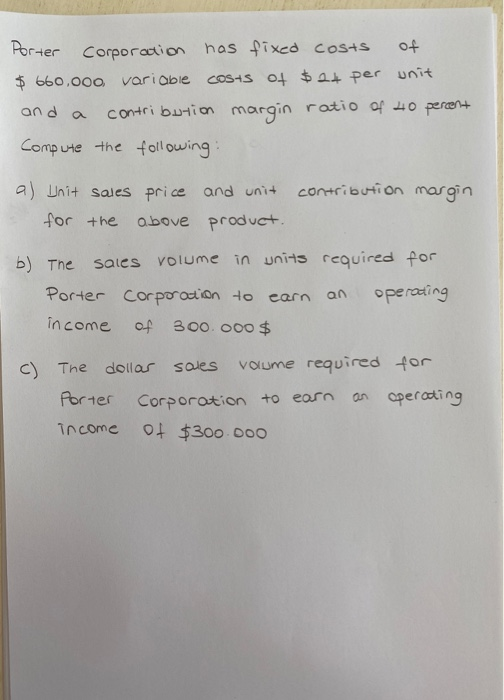 Porter Corporation has fixed costs of
$ 660,000, variable costs of $24 per unit
and a contribution margin ratio of 40 percent
Compute the following:
a) Unit sales price and unit contribution margin
for the above product.
b) The sales volume in units required for
Porter Corporation to earn an operating
income of 300.000$
c) The dollar sales volume required for
Porter Corporation to earn an operating
income of $300.000